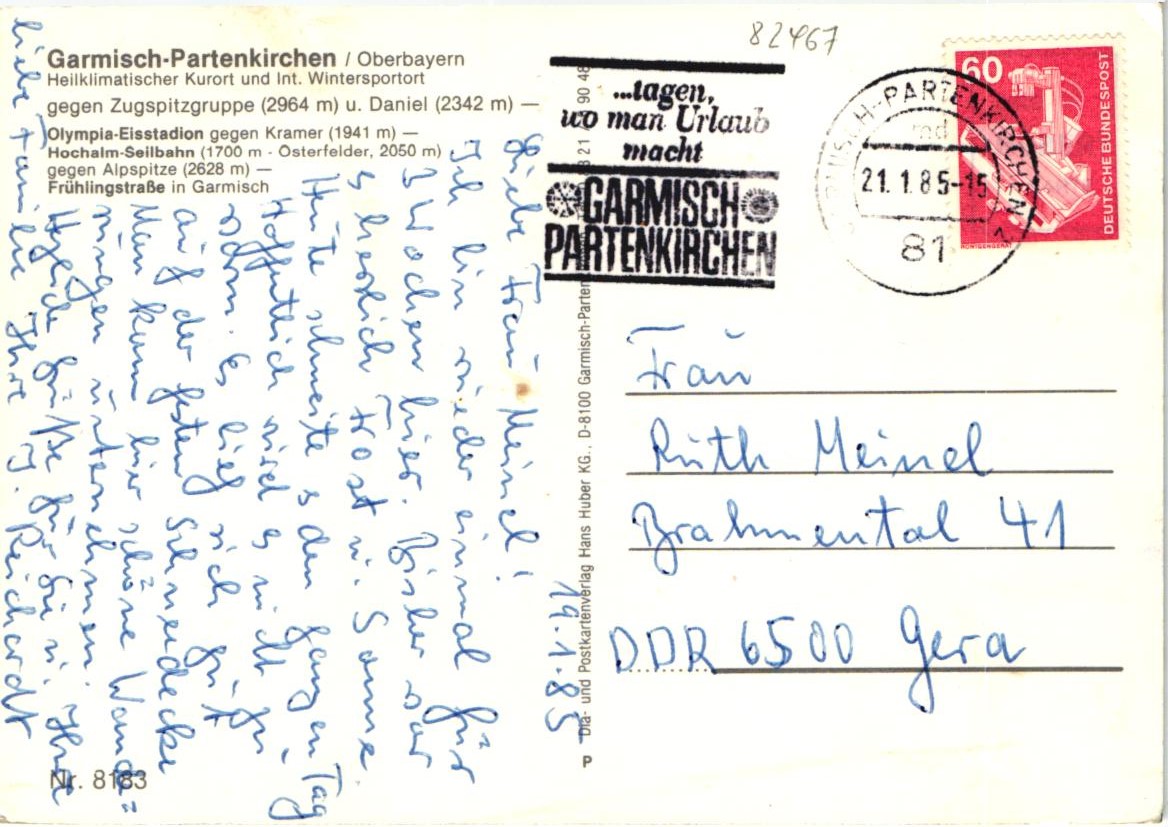 82467
Garmisch-Partenkirchen / Oberbayern
Heilklimatischer Kurort und Int. Wintersportort
gegen Zugspitzgruppe (2964 m) u. Daniel (2342 m) —
Olympia-Eisstadion gegen Kramer (1941 m) —
Hochalm-Seilbahn (1700 m - Osterfelder, 2050 m)
gegen Alpspitze (2628 m) —
Frühlingstraße in Garmisch
...tagen,
wo man Urlaub
macht
GARMISCH
PARTENKIRCHEN
GARMISCH-PARTENKIRCHEN 2
21.1.85-15
81
60
DEUTSCHE BUNDESPOST
RÖNTGENGERÄT
19.1.85
Liebe Frau Meinel!
Ich bin wieder einmal für
3 Wochen hier. Bisher war
s herrlich Frost u. Sonne.
Heute schneite s den ganzen Tag
Hoffentlich wird es nicht zu
warm. Es lief sich gut
auf der festen Schneedecke
Man kann hier schöne Wande=
rungen unternehmen.
Herzliche Grüße für Sie u. Ihre
liebe Familie Ihre J. Reichardt
Frau
Ruth Meinel
Brahmental 41
DDR 6500 Gera
Dia- und Postkartenverlag Hans Huber KG., D-8100 Garmisch-Parten
21 90 48
P
Nr. 8183